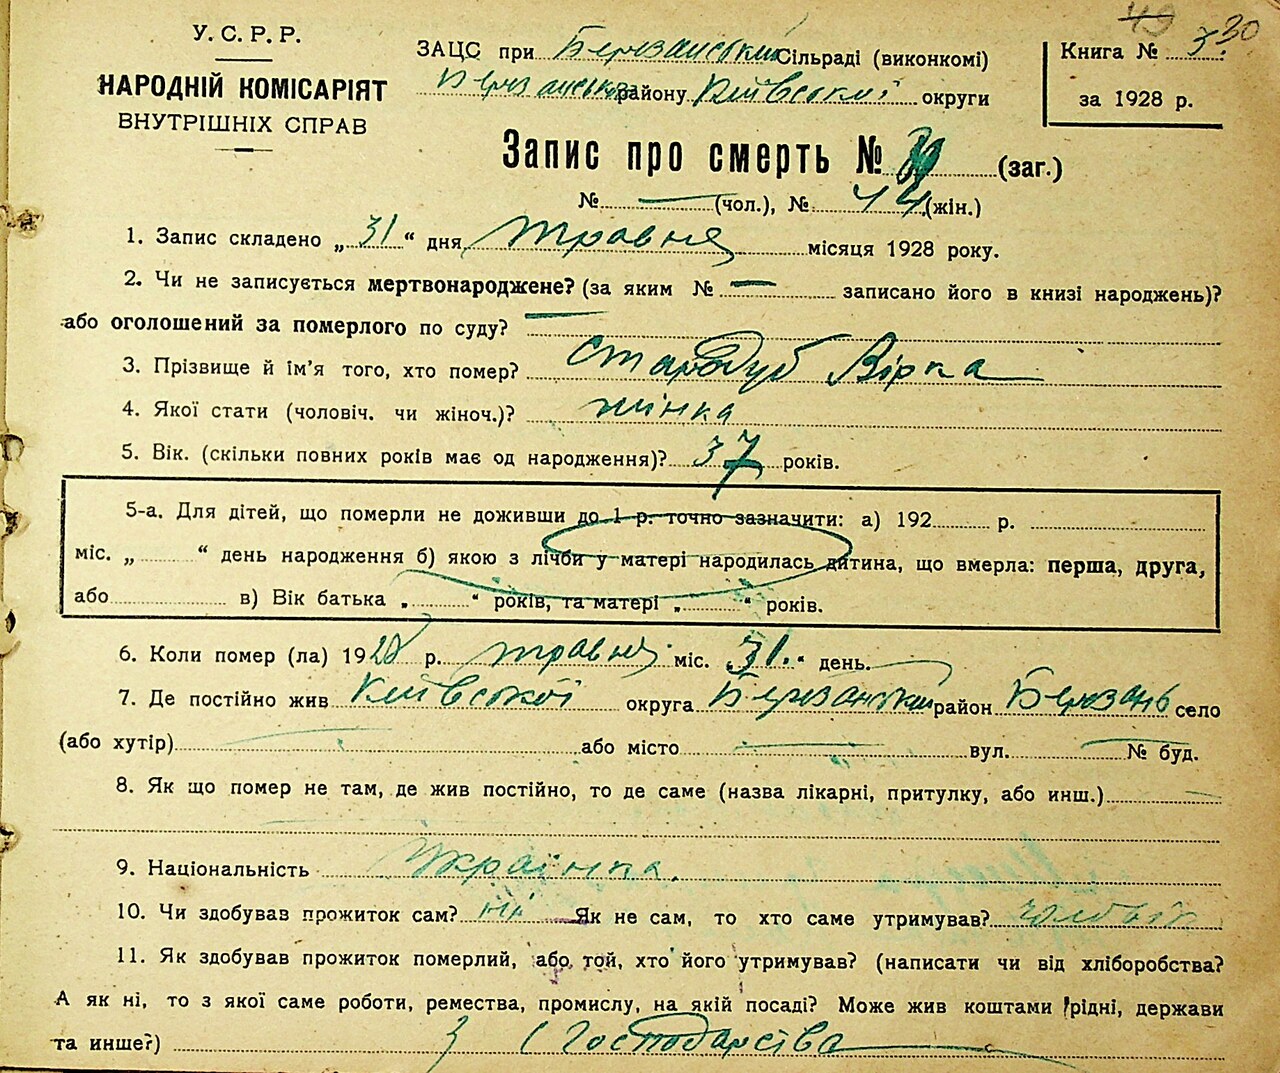 У. С. Р. Р.
НАРОДНІЙ КОМІСАРІЯТ
ВНУТРІШНІХ СПРАВ
ЗАЦС при Березанський Сільраді (виконкомі)
Березанського району Київської округи
49 30
Книга № 3
за 1928 р.
Запис про смерть № (заг.)
№ — (чол.), № 44 (жін.)
1. Запис складено „ 31 “ дня травня місяця 1928 року.
2. Чи не записується мертвонароджене? (за яким № — записано його в книзі народжень)?
або оголошений за померлого по суду? —
3. Прізвище й ім'я того, хто помер? Стародуб Вірка
4. Якої стати (чоловіч. чи жіноч.)? жінка
5. Вік. (скільки повних років має од народження)? 37 років.
5-а. Для дітей, що померли не доживши до 1 р. точно зазначити: а) 192 р.
міс. „ “ день народження б) якою з лічби у матері народилась дитина, що вмерла: перша, друга,
або в) Вік батька „ “ років, та матері „ “ років.
6. Коли помер (ла) 1928 р. травня міс. „ 31. “ день.
7. Де постійно жив Київської округа Березанський район Березань село
(або хутір) — або місто — вул. — № буд.
8. Як що помер не там, де жив постійно, то де саме (назва лікарні, притулку, або инш.) —
9. Національність Українка.
10. Чи здобував прожиток сам? ні Як не сам, то хто саме утримував? чоловік
11. Як здобував прожиток померлий, або той, хто його утримував? (написати чи від хліборобства?
А як ні, то з якої саме роботи, ремества, промислу, на якій посаді? Може жив коштами рідні, держави
та инше?) з Господарства